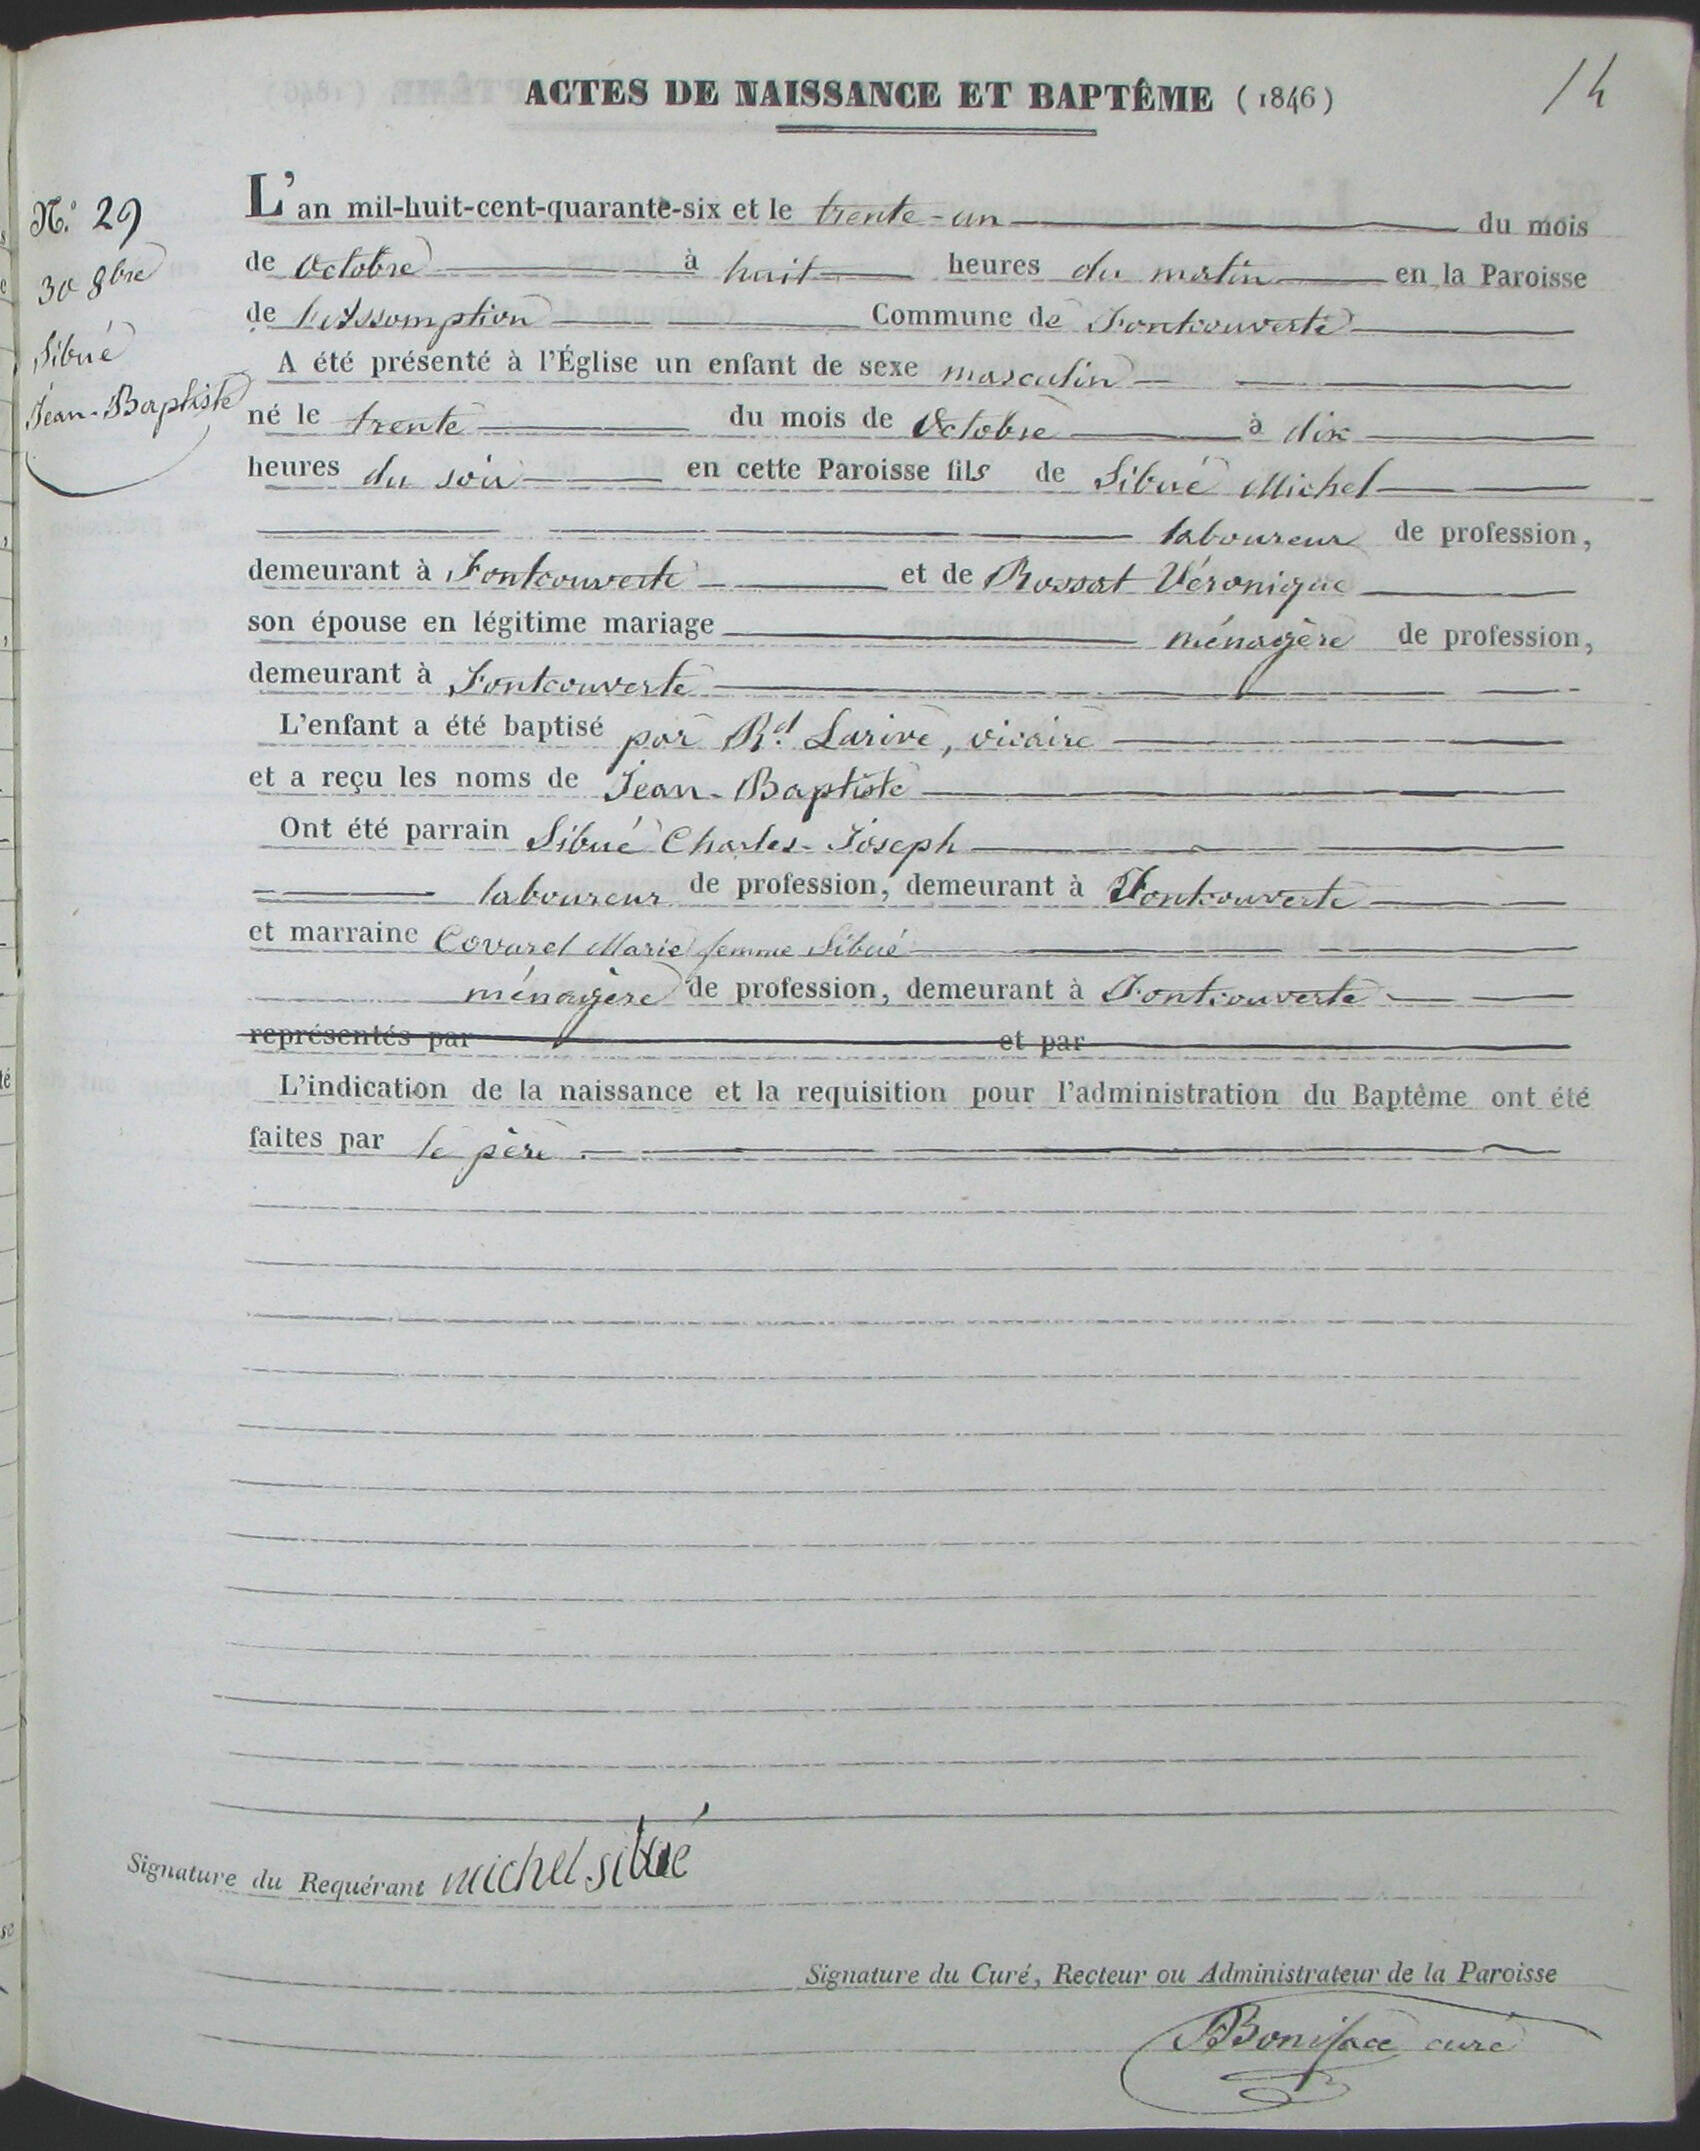 ACTES DE NAISSANCE ET BAPTÊME (1846)
14
N.° 29
30 8bre
Sibué
Jean-Baptiste
L'an mil-huit-cent-quarante-six et le trente-un du mois
de Octobre à huit heures du matin en la Paroisse
de l'Assomption Commune de Fontcouverte
A été présenté à l'Église un enfant de sexe masculin
né le trente du mois de Octobre à dix
heures du soir en cette Paroisse fils de Sibué Michel
laboureur de profession,
demeurant à Fontcouverte et de Rossat Véronique
son épouse en légitime mariage ménagère de profession,
demeurant à Fontcouverte
L'enfant a été baptisé par Rd. Larive, vicaire
et a reçu les noms de Jean-Baptiste
Ont été parrain Sibué Charles-Joseph
laboureur de profession, demeurant à Fontcouverte
et marraine Covarel Marie femme Sibué
ménagère de profession, demeurant à Fontcouverte
représentés par et par
L'indication de la naissance et la requisition pour l'administration du Baptême ont été
faites par le père.
Signature du Requérant michel sibué
Signature du Curé, Recteur ou Administrateur de la Paroisse
Boniface curé